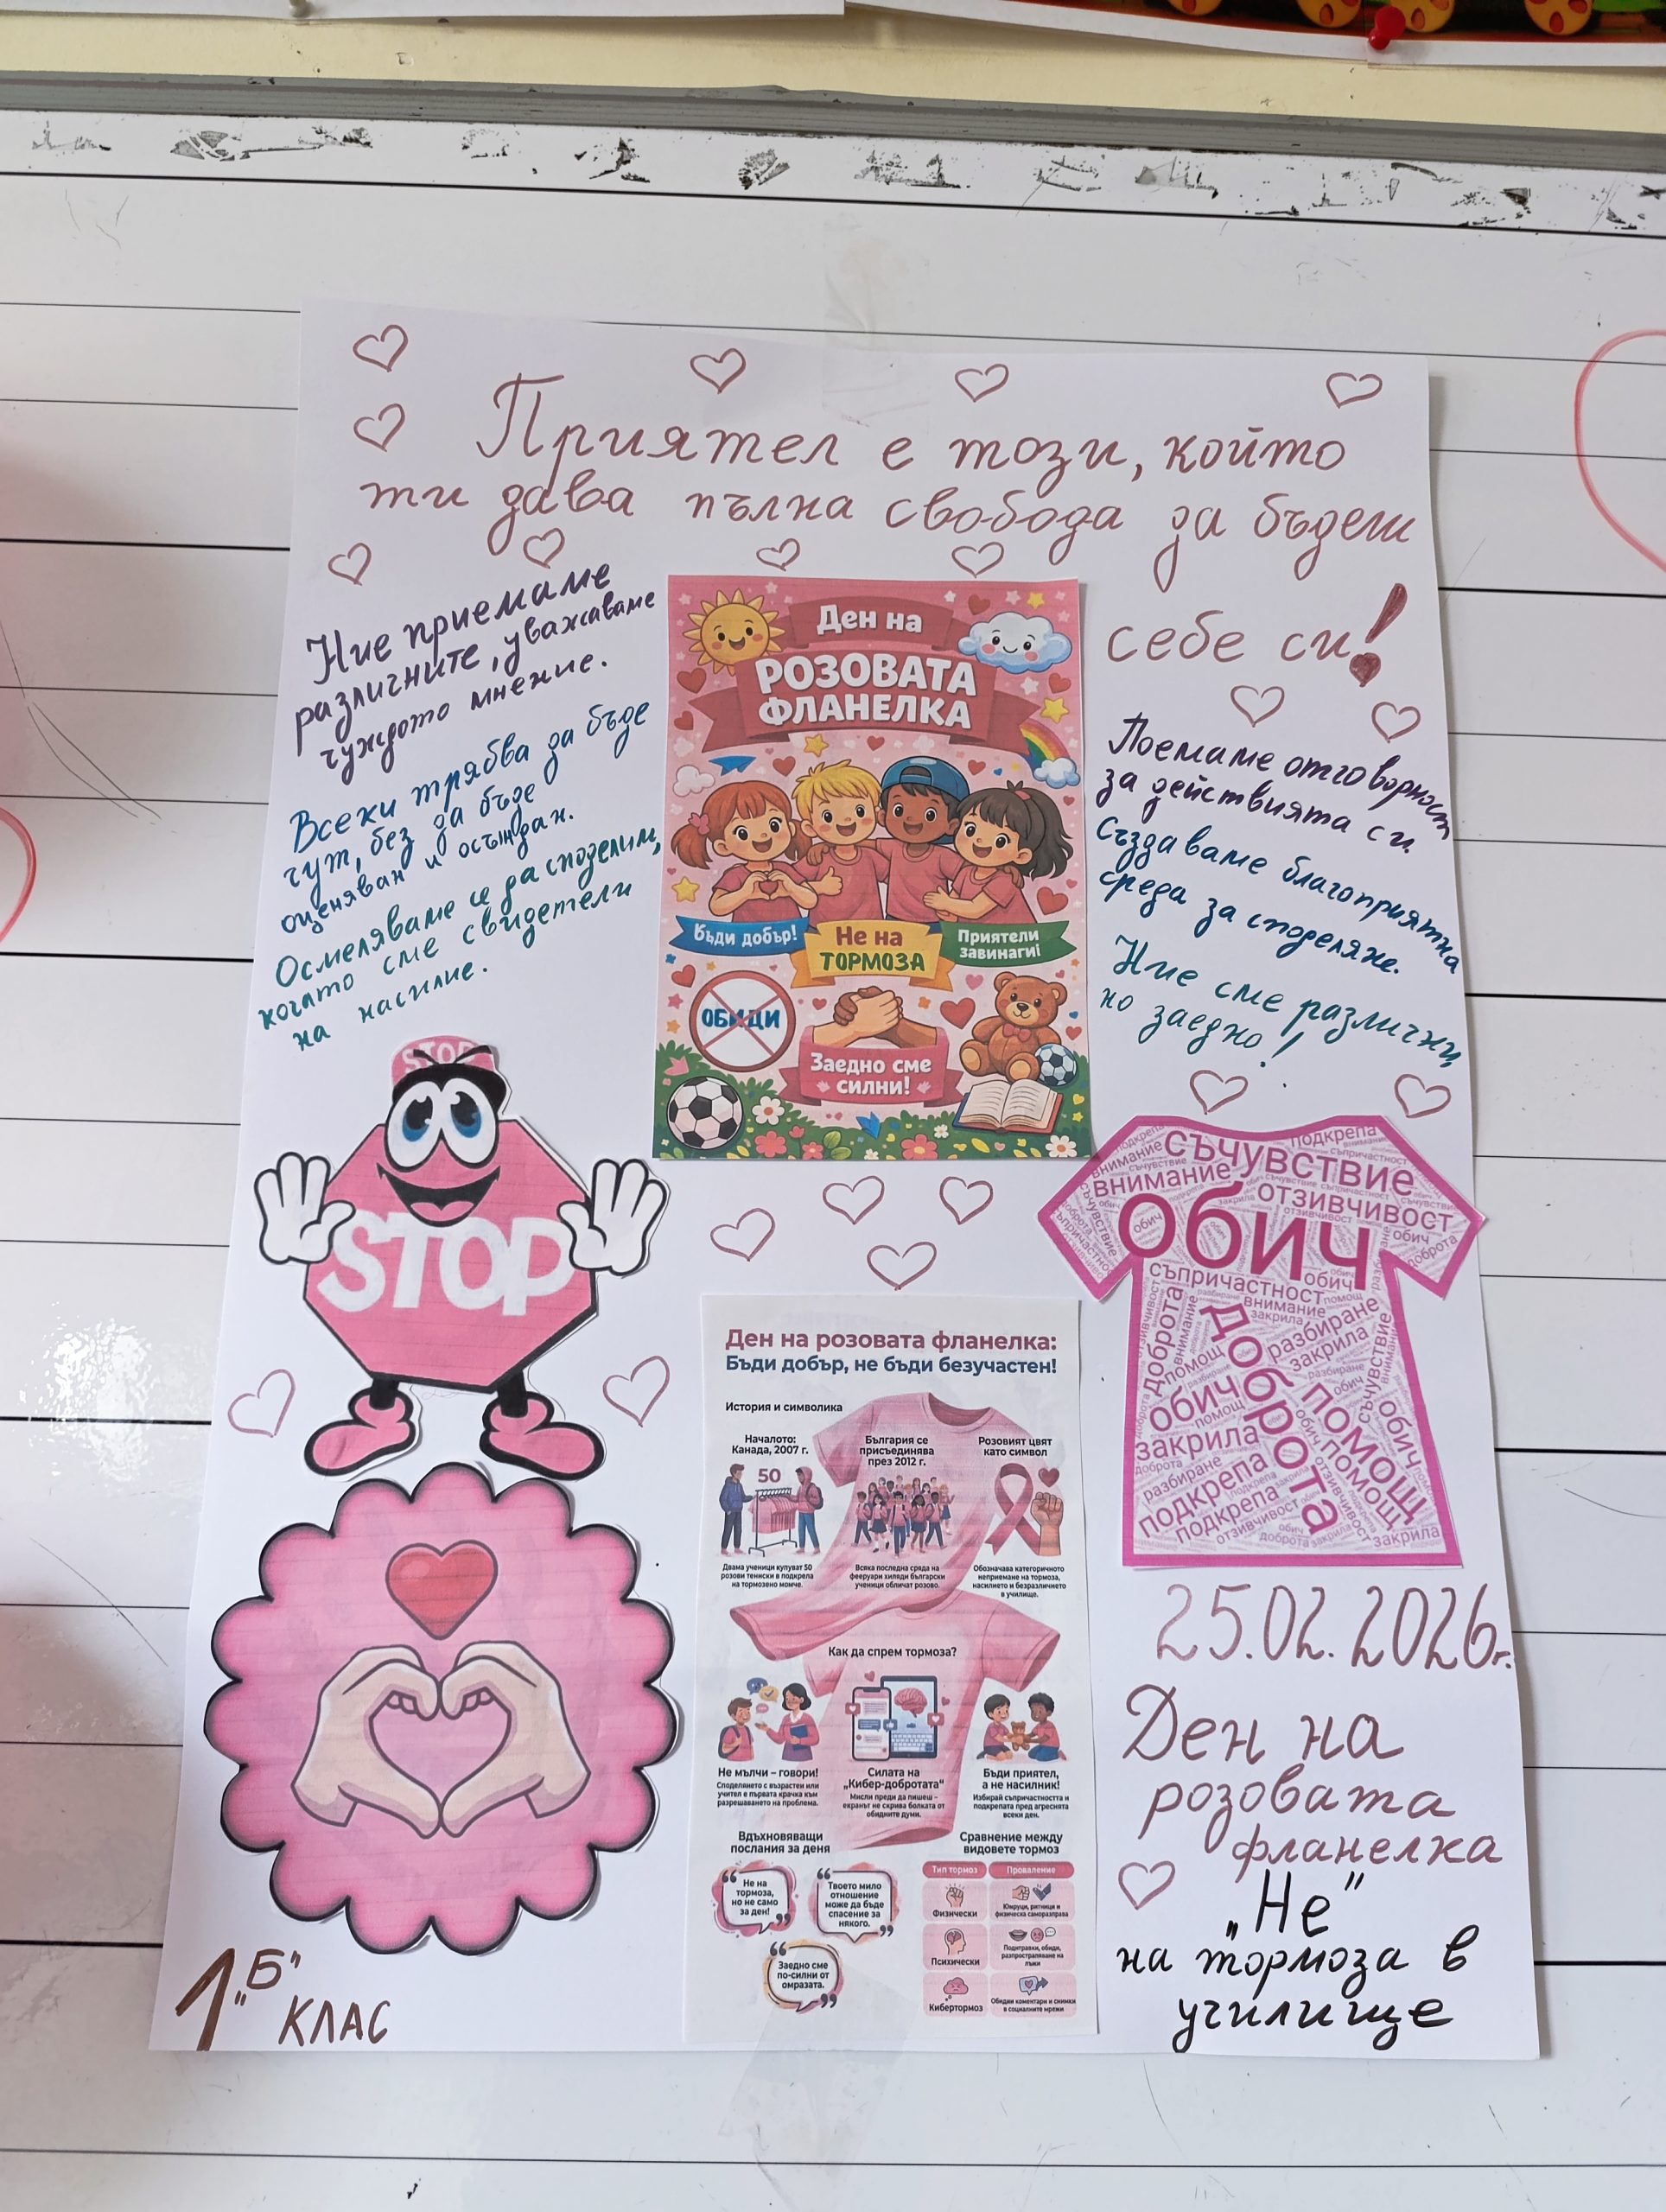 Приятел е този, който
ти дава пълна свобода да бъдеш
себе си!
Ние приемаме
различните, уважаваме
чуждото мнение.
Всеки трябва да бъде
чут, без да бъде
оценяван и осъждан.
Осмеляваме се да споделим,
когато сме свидетели
на насилие.
Ден на
РОЗОВАТА
ФЛАНЕЛКА
Бъди добър!
Не на
ТОРМОЗА
Приятели
завинаги!
ОБИДИ
Заедно сме
силни!
Поемаме отговорност
за действията си.
Създаваме благоприятна
среда за споделяне.
Ние сме различни,
но заедно!
STOP
STOP
подкрепа
съчувствие
внимание
внимание
отзивчивост
обич
съпричастност
обич
внимание
закрила
доброта
разбиране
закрила
помощ
обич
помощ
доброта
помощ
помощ
съчувствие
обич
закрила
разбиране
подкрепа
подкрепа
отзивчивост
закрила
Ден на розовата фланелка:
Бъди добър, не бъди безучастен!
История и символика
Началото:
Канада, 2007 г.
50
Двама ученици купуват 50
розови тениски в подкрепа
на тормозено момче.
България се
присъединява
през 2012 г.
Всяка последна сряда на
февруари хиляди български
ученици обличат розово.
Розовият цвят
като символ
Обозначава категоричното
неприемане на тормоза,
насилието и безразличието
в училище.
Как да спрем тормоза?
Не мълчи – говори!
Споделянето с възрастен или
учител е първата крачка към
разрешаването на проблема.
Силата на
„Кибер-добротата“
Мисли преди да пишеш –
екранът не скрива болката от
обидните думи.
Бъди приятел,
а не насилник!
Избирай съпричастността и
подкрепата пред агресията
всеки ден.
Вдъхновяващи
послания за деня
Не на
тормоза,
но не само
за ден!
Твоето мило
отношение
може да бъде
спасение за
някого.
Заедно сме
по-силни от
омразата.
Сравнение между
видовете тормоз
Тип тормоз Проявление
Физически
Юмруци, ритници и
физическа саморазправа
Психически
Подигравки, обиди,
разпространяване на
лъжи
Кибертормоз
Обидни коментари и снимки
в социалните мрежи
25.02.2026г.
Ден на
розовата
фланелка
„Не“
на тормоза в
училище
1 „Б“
КЛАС